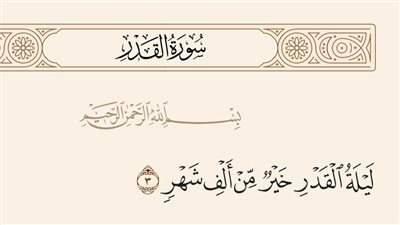 سُورَةُ الْقَدْرِ
بِسْمِ اللَّهِ الرَّحْمَٰنِ الرَّحِيمِ
لَيْلَةُ ٱلْقَدْرِ خَيْرٌ مِّنْ أَلْفِ شَهْرٍ ٣